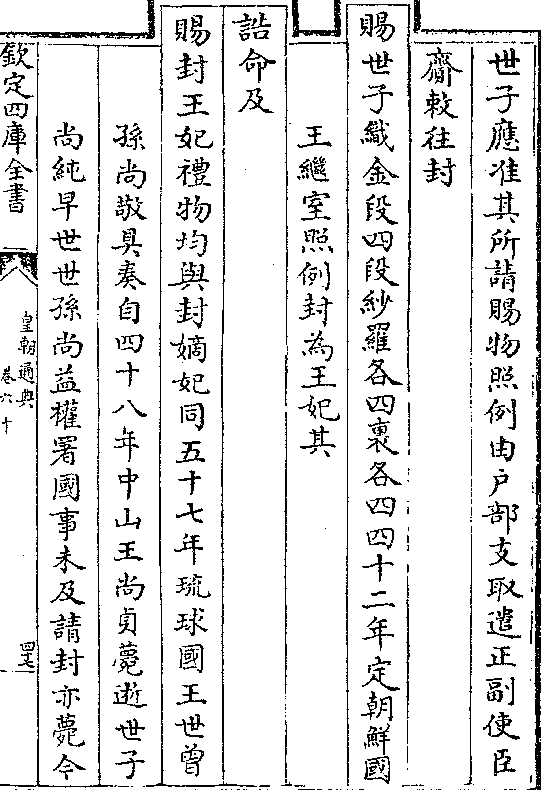 世子應准其所請賜物照例由户部支取遣正副使臣
齎敕往封
賜世子織金段四段紗羅各四裏各四四十二年定朝鮮國
王繼室照例封為王妃其
誥命及
賜封王妃禮物均與封嫡妃同五十七年琉球國王世曽
孫尚敬具奏自四十八年中山王尚貞薨逝世子
尚純早世世孫尚益權署國事未及請封亦薨今
欽定四庫全書
皇朝通典
卷六十
四七